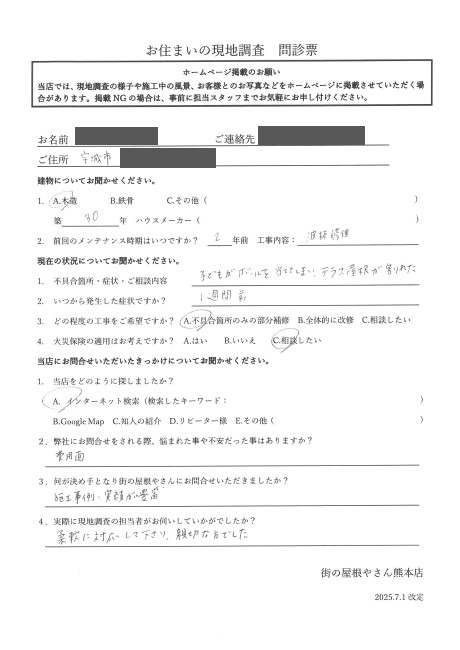 お住まいの現地調査 問診票
ホームページ掲載のお願い
当店では、現地調査の様子や施工中の風景、お客様とのお写真などをホームページに掲載させていただく場
合があります。掲載 NG の場合は、事前に担当スタッフまでお気軽にお申し付けください。
お名前 ご連絡先
ご住所 宇城市
建物についてお聞かせください。
1. A.木造 B.鉄骨 C.その他（ ）
築 30 年 ハウスメーカー（ ）
2. 前回のメンテナンス時期はいつですか？ 2 年前 工事内容： 波板修理
現在の状況についてお聞かせください。
1. 不具合箇所・症状・ご相談内容 子どもがボールを当ててしまい、テラス屋根が割れた
2. いつから発生した症状ですか？ 1週間前
3. どの程度の工事をご希望ですか？ A.不具合箇所のみの部分補修 B.全体的に改修 C.相談したい
4. 火災保険の適用はお考えですか？ A.はい B.いいえ C.相談したい
当店にお問合せいただいたきっかけについてお聞かせください。
1. 当店をどのように探しましたか？
A. インターネット検索（検索したキーワード： ）
B.Google Map C.知人の紹介 D.リピーター様 E.その他（ ）
2．弊社にお問合せをされる際、悩まれた事や不安だった事はありますか？
費用面
3．何が決め手となり街の屋根やさんにお問合せいただきましたか？
施工事例、実績が豊富
4．実際に現地調査の担当者がお伺いしていかがでしたか？
柔軟に対応して下さり、親切な方でした
街の屋根やさん熊本店
2025.7.1 改定